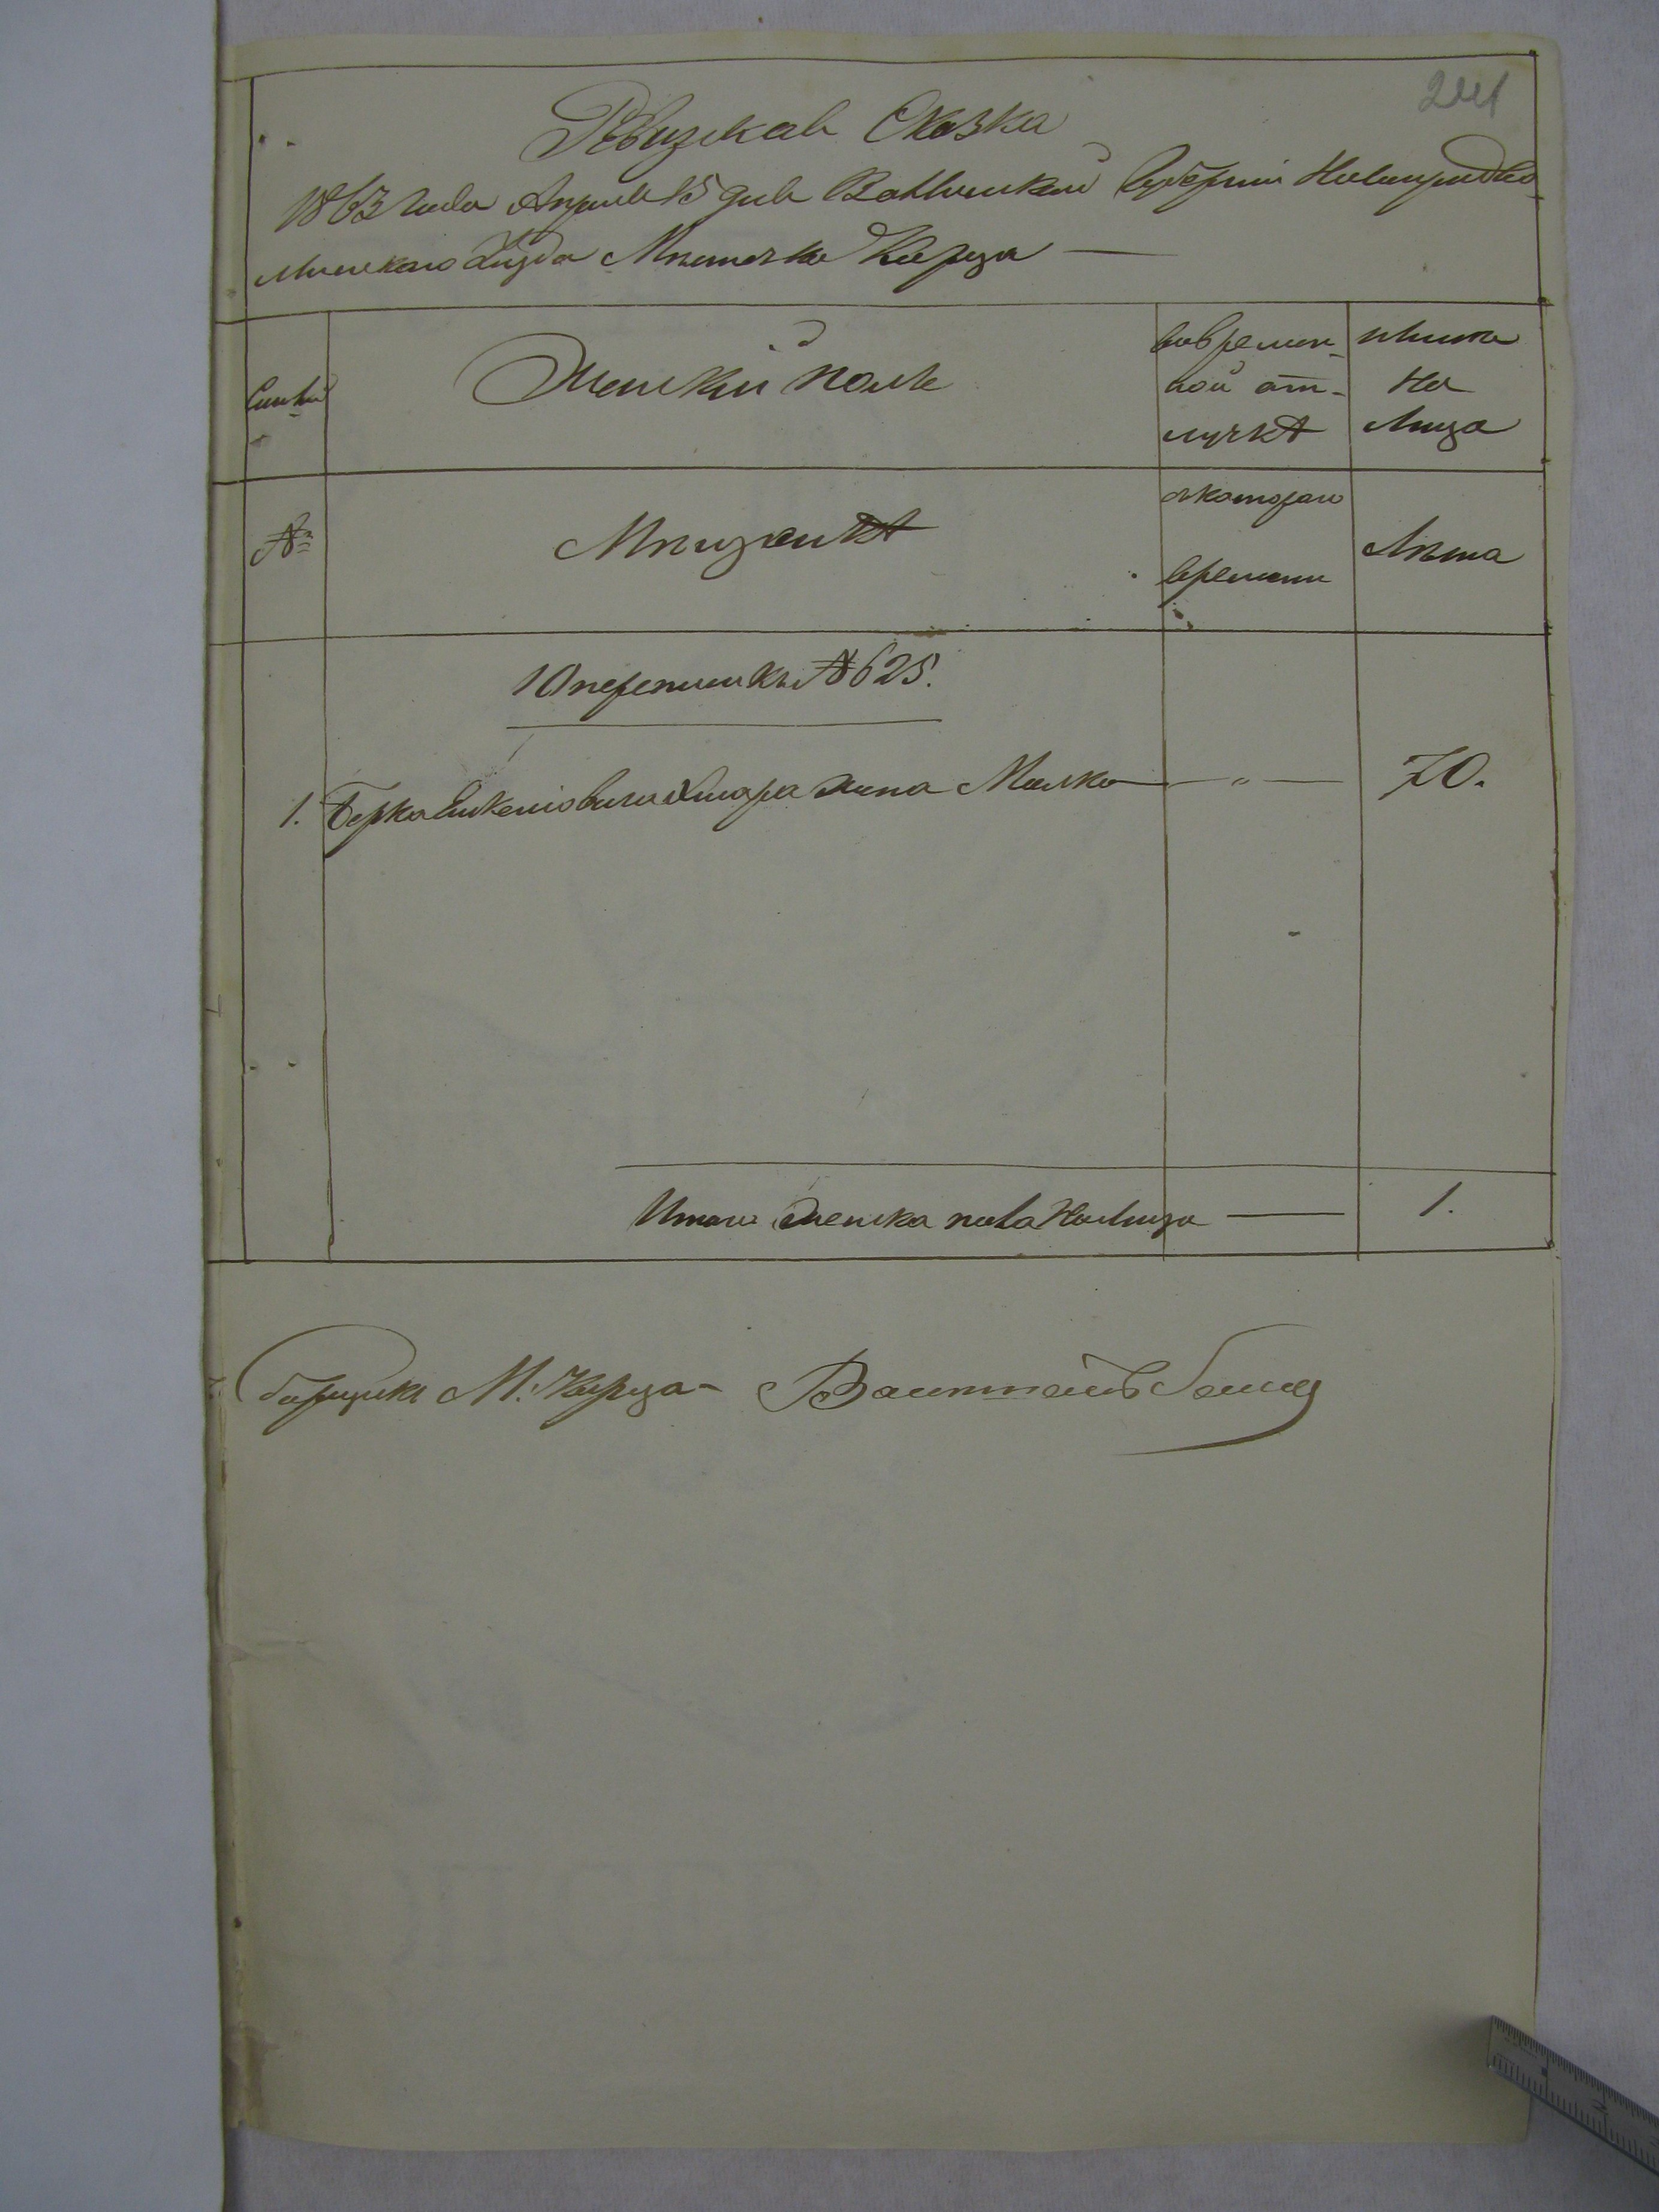 241
Ревизская Сказка
1863 года Апреля 15 дня Волынской Губернии Новоградво-
лынского Уезда Местечка Кореца
Семьи
Женский полъ
вовремен-
ной от-
лучкѣ
Ныне
на
Лицо
№
Мещанкѣ
скотораго
времени
Лета
10 переписки № 625.
1. Берка жена Малка — „ — 70.
Итого Женска пола Налицо — 1.
Сборщикъ М. Кореца -